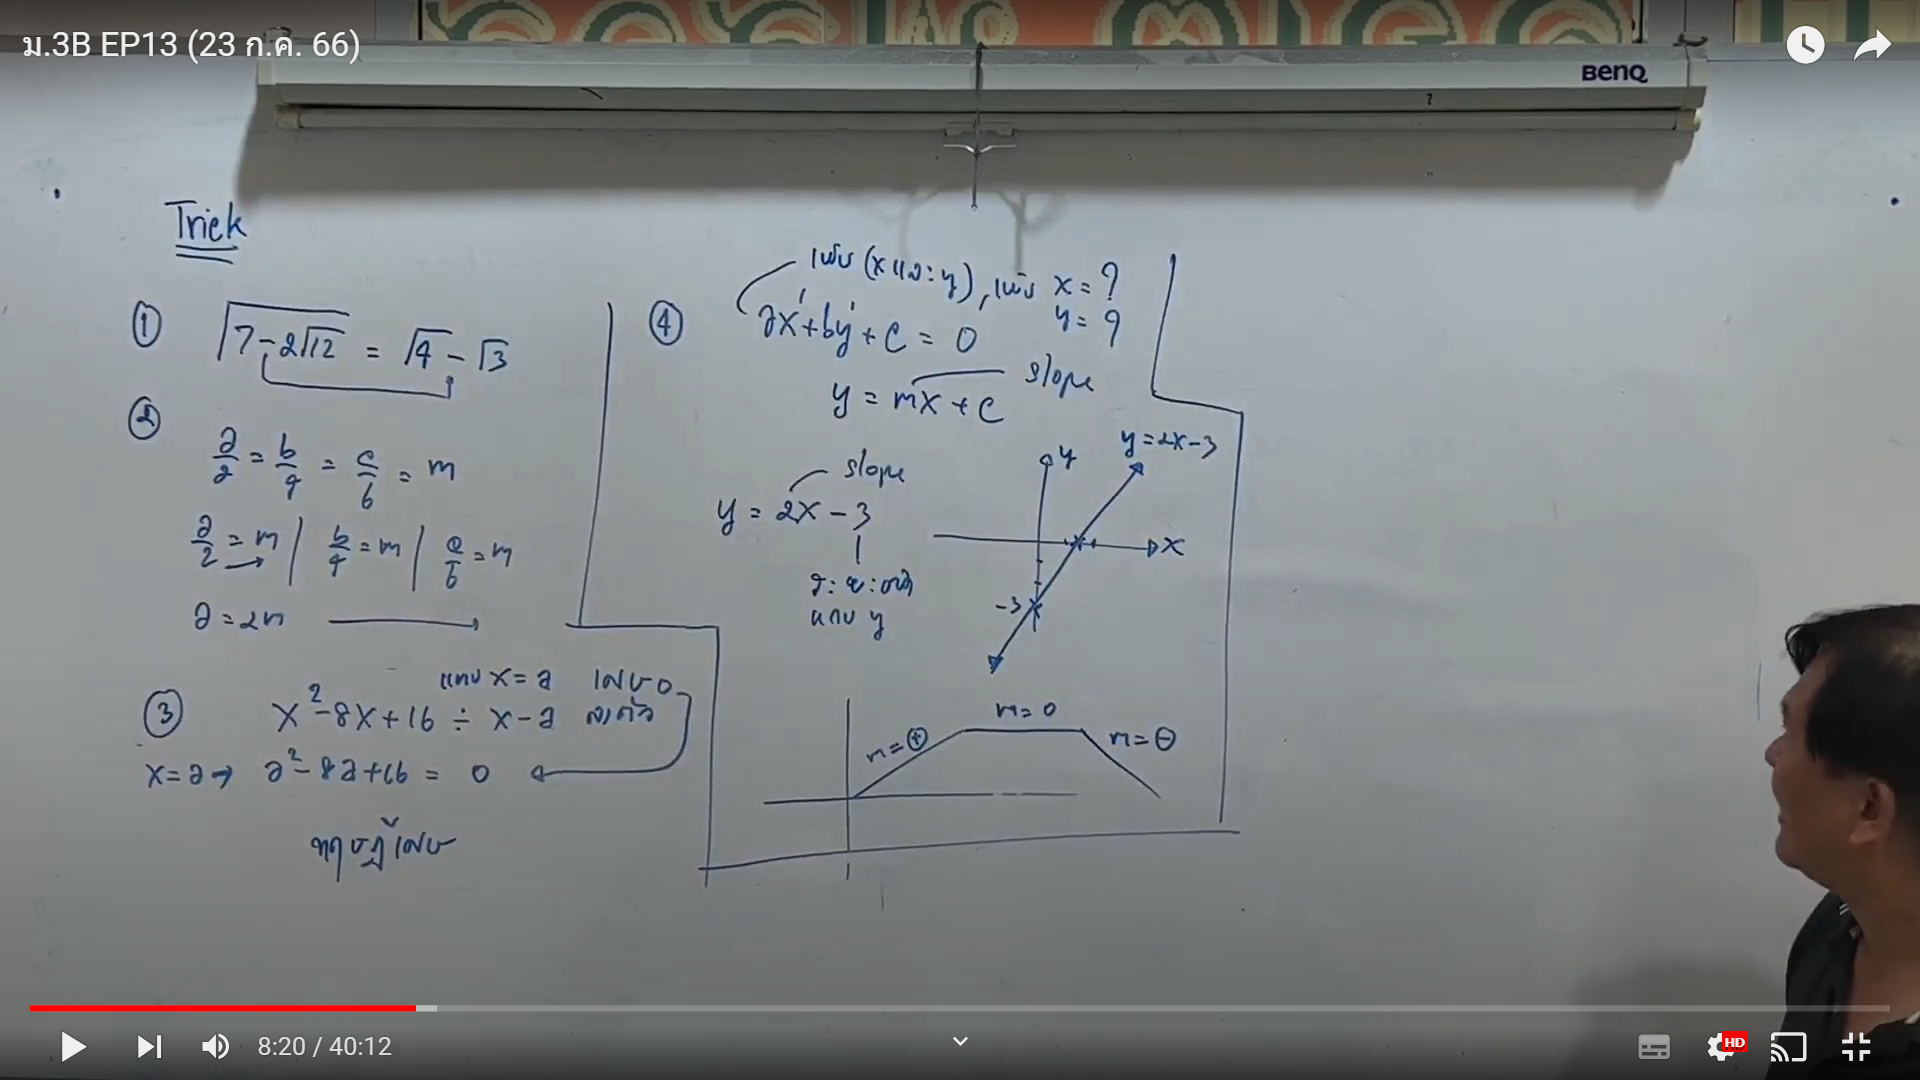 ม.3B EP13 (23 ก.ค. 66)
BenQ
Trick
① √(7-2√12) = √4 - √3
②
a/2 = b/4 = c/6 = m
a/2 = m | b/4 = m | c/6 = m
a = 2m
แทน x = a เศษ 0
③ x² - 8x + 16 ÷ x - a ลงตัว
x = a → a² - 8a + 16 = 0
ทฤษฎีเศษ
④
(x และ y), x = ?
y = ?
ax' + by' + c = 0
slope
y = mx + c
slope
y = 2x - 3
แกน y
y
y = 2x - 3
x
-3
m = ⊕
m = 0
m = ⊖
8:20 / 40:12
HD